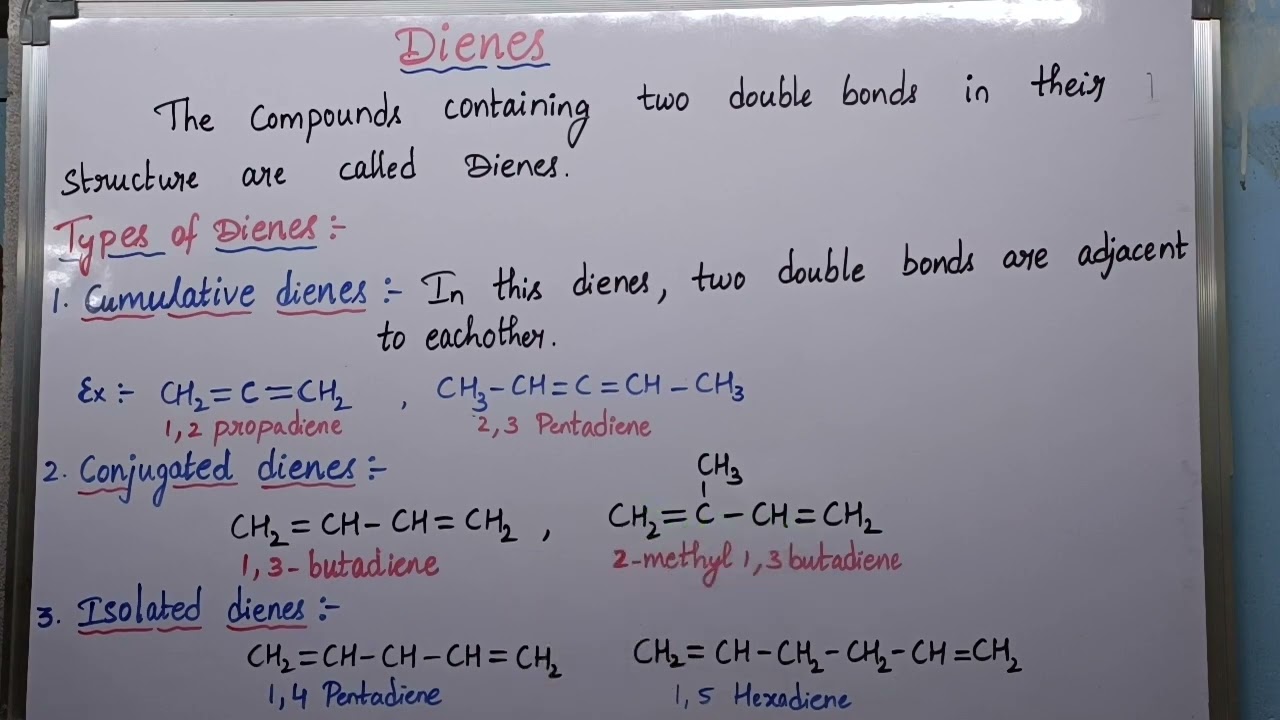 Dienes
The Compounds containing two double bonds in their
structure are called Dienes.
Types of Dienes :-
1. Cumulative dienes :- In this dienes, two double bonds are adjacent
to eachother.
Ex :- CH₂=C=CH₂ , CH₃-CH=C=CH-CH₃
1,2 propadiene 2,3 Pentadiene
2. Conjugated dienes :-
CH₃
CH₂=CH-CH=CH₂ , CH₂=C-CH=CH₂
1,3-butadiene 2-methyl 1,3 butadiene
3. Isolated dienes :-
CH₂=CH-CH-CH=CH₂ CH₂=CH-CH₂-CH₂-CH=CH₂
1,4 Pentadiene 1,5 Hexadiene